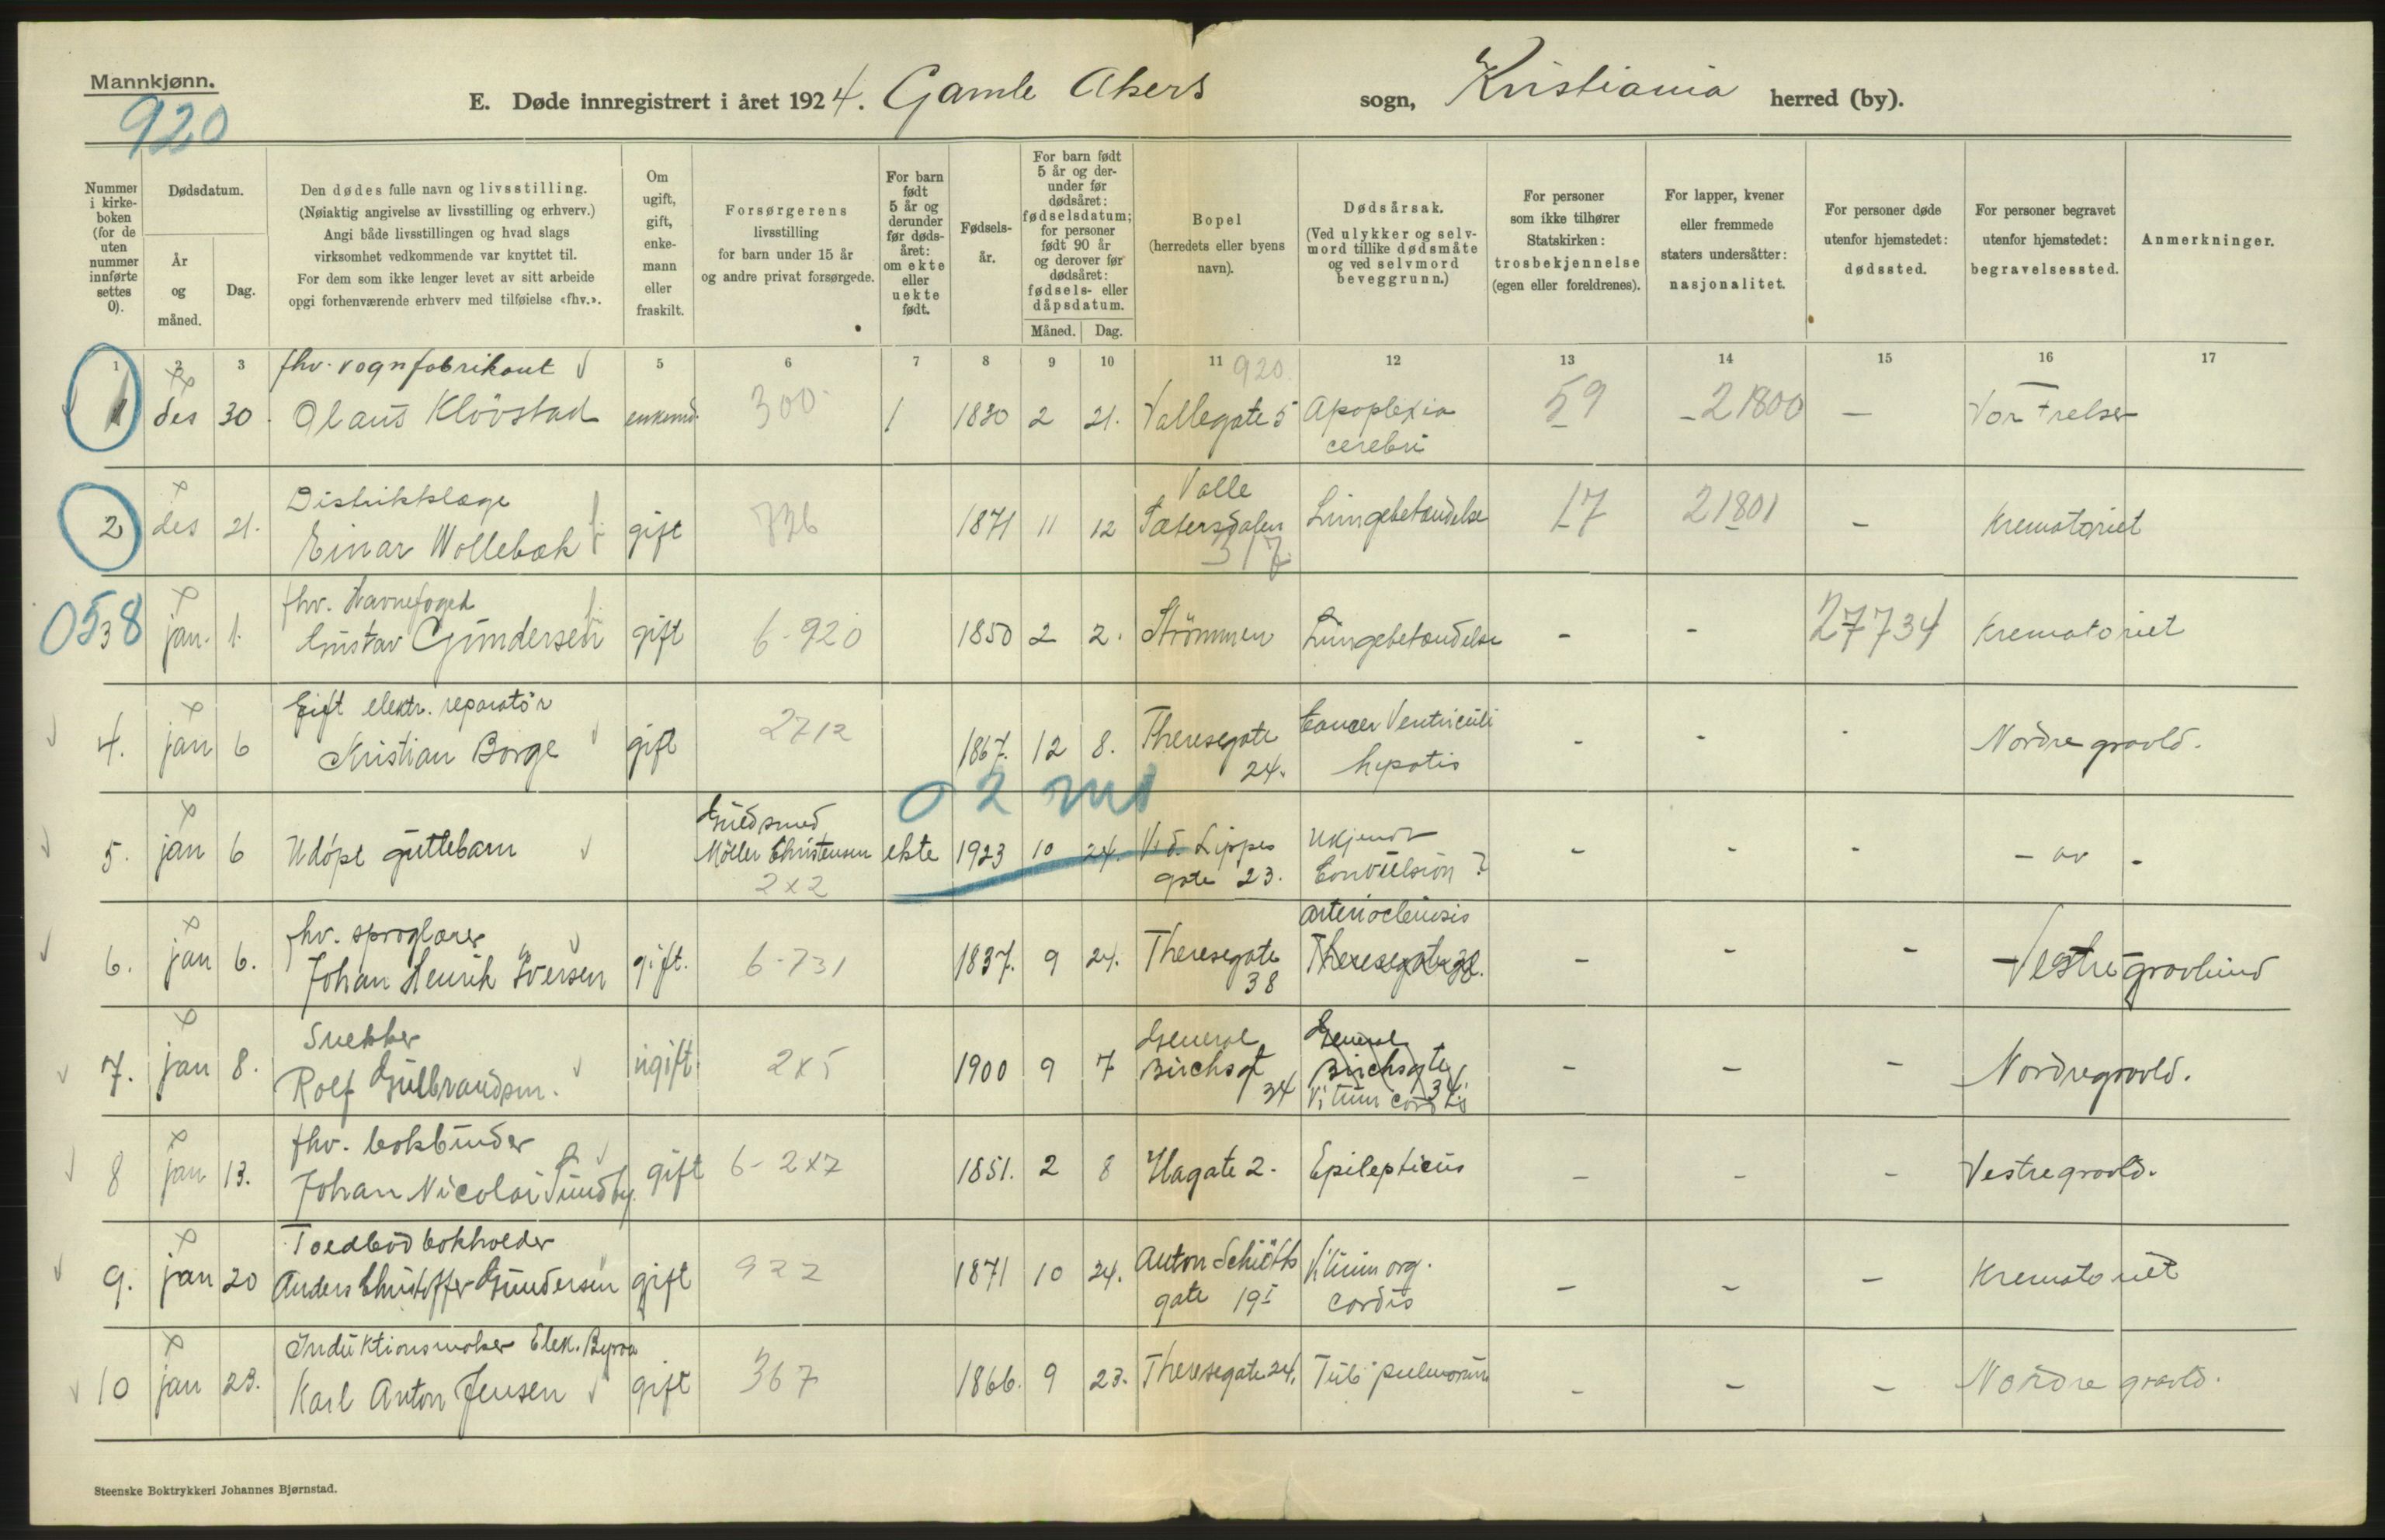 Mannkjønn.
920
E. Døde innregistrert i året 1924. Gamle Akers sogn, Kristiania herred (by).
Nummer i kirkeboken (for de uten nummer innførte settes 0).
Dødsdatum.
År og måned.
Dag.
Den dødes fulle navn og livsstilling.
(Nøiaktig angivelse av livsstilling og erhverv.)
Angi både livsstillingen og hvad slags
virksomhet vedkommende var knyttet til.
For dem som ikke lenger levet av sitt arbeide
opgi forhenværende erhverv med tilføielse «fhv.».
Om ugift, gift, enkemann eller fraskilt.
Forsørgerens
livsstilling
for barn under 15 år
og andre privat forsørgede.
For barn født 5 år og derunder før dødsåret: om ekte eller uekte født.
Fødselsår.
For barn født 5 år og derunder før dødsåret: fødselsdatum; for personer født 90 år og derover før dødsåret: fødsels- eller dåpsdatum.
Måned. Dag.
Bopel
(herredets eller byens
navn).
Dødsårsak.
(Ved ulykker og selvmord tillike dødsmåte og ved selvmord beveggrunn.)
For personer
som ikke tilhører
Statskirken:
trosbekjennelse
(egen eller foreldrenes).
For lapper, kvener
eller fremmede
staters undersåtter:
nasjonalitet.
For personer døde
utenfor hjemstedet:
dødssted.
For personer begravet
utenfor hjemstedet:
begravelsessted.
Anmerkninger.
1 2 3 5 6 7 8 9 10 11 12 13 14 15 16 17
920.
fhv. vognfabrikant
1 des 30. Olaus Klövstad enkemd. 300 1 1830 2 21. Vallegate 5 Apoplexia 59 21800 – Vor Frelser
cerebri
Distriktslæge Valle
2 des 21. Einar Wollebæk gift 726 1871 11 12 Sætersdalen Lungebetændelse 17 21801 – Krematoriet
317
fhv. Havnefoged
058
3 jan. 1. Gustav Gundersen gift 6-920 1850 2 2. Strömmen Lungebetændelse – – 27734 Krematoriet
Gift elektr. reparatör
4. jan 6 Kristian Borge gift 2712 1867. 12 8. Theresegate Cancer Ventriculi – – – Nordre gravld.
24. hepatis
02 md
Guldsmed
5. jan 6 Udöpt guttebarn Möller Christensen ekte 1923 10 24. Vid. Lippes Ukjendt – – – – av –
2x2 gate 23. Convulsion ?
fhv. sproglærer arterioclerosis
6. jan 6. Johan Henrik Iversen gift. 6-731 1837. 9 24. Theresegate Theresegate 38. – – – Vestre gravlund
38
Snekker General General
7. jan 8. Rolf Gulbrandsen. ugift. 2x5 1900 9 7 Birchsgt Birchsgate – – – Nordregravld.
34 34.
Vitium cordis
fhv. bokbinder
8 jan 13. Johan Nicolai Sundby gift 6-2x7 1851. 2 8 Ullagate 2. Epilepticus – – – Vestregravld.
Toldbod bokholder
9. jan 20 Anders Christoffer Gundersen gift 922 1871 10 24. Anton Schiötts Vitium org. – – – Krematoriet
gate 19 I cordis
Induktionsmaker Elek. Byraa
10 jan 23. Karl Anton Jensen gift 367 1866. 9 23. Theresegate 24. Tub. pulmorum – – – Nordre gravld.
Steenske Boktrykkeri Johannes Bjørnstad.